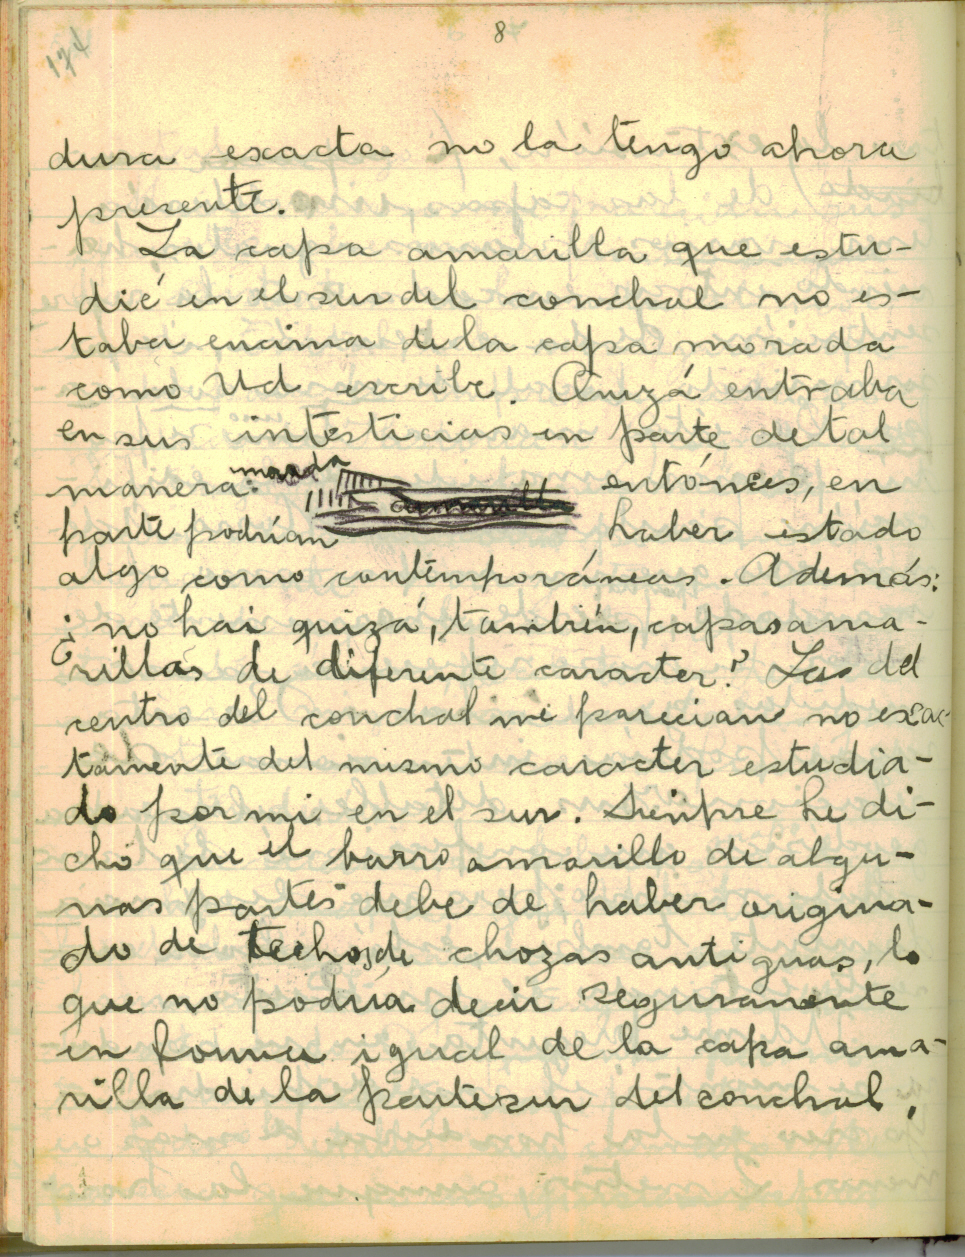 174
8
dura exacta no la tengo ahora
presente.
La capa amarilla que estu-
dié en el sur del conchal no es-
taba encima de la capa morada
como Ud escribe. Quizá entraba
en sus intesticios en parte de tal
manera: morada amarilla entónces, en
parte podrían haber estado
algo como contemporáneas. Además:
¿no hai quizá, también, capas ama-
rillas de diferente caracter? Las del
centro del conchal me parecian no exac-
tamente del mismo caracter estudia-
do por mi en el sur. Siénpre he di-
cho que el barro amarillo de algu-
nas partes debe de haber origina-
do de techos de chozas antiguas, lo
que no podria decir seguramente
en forma igual de la capa ama-
rilla de la parte sur del conchal,